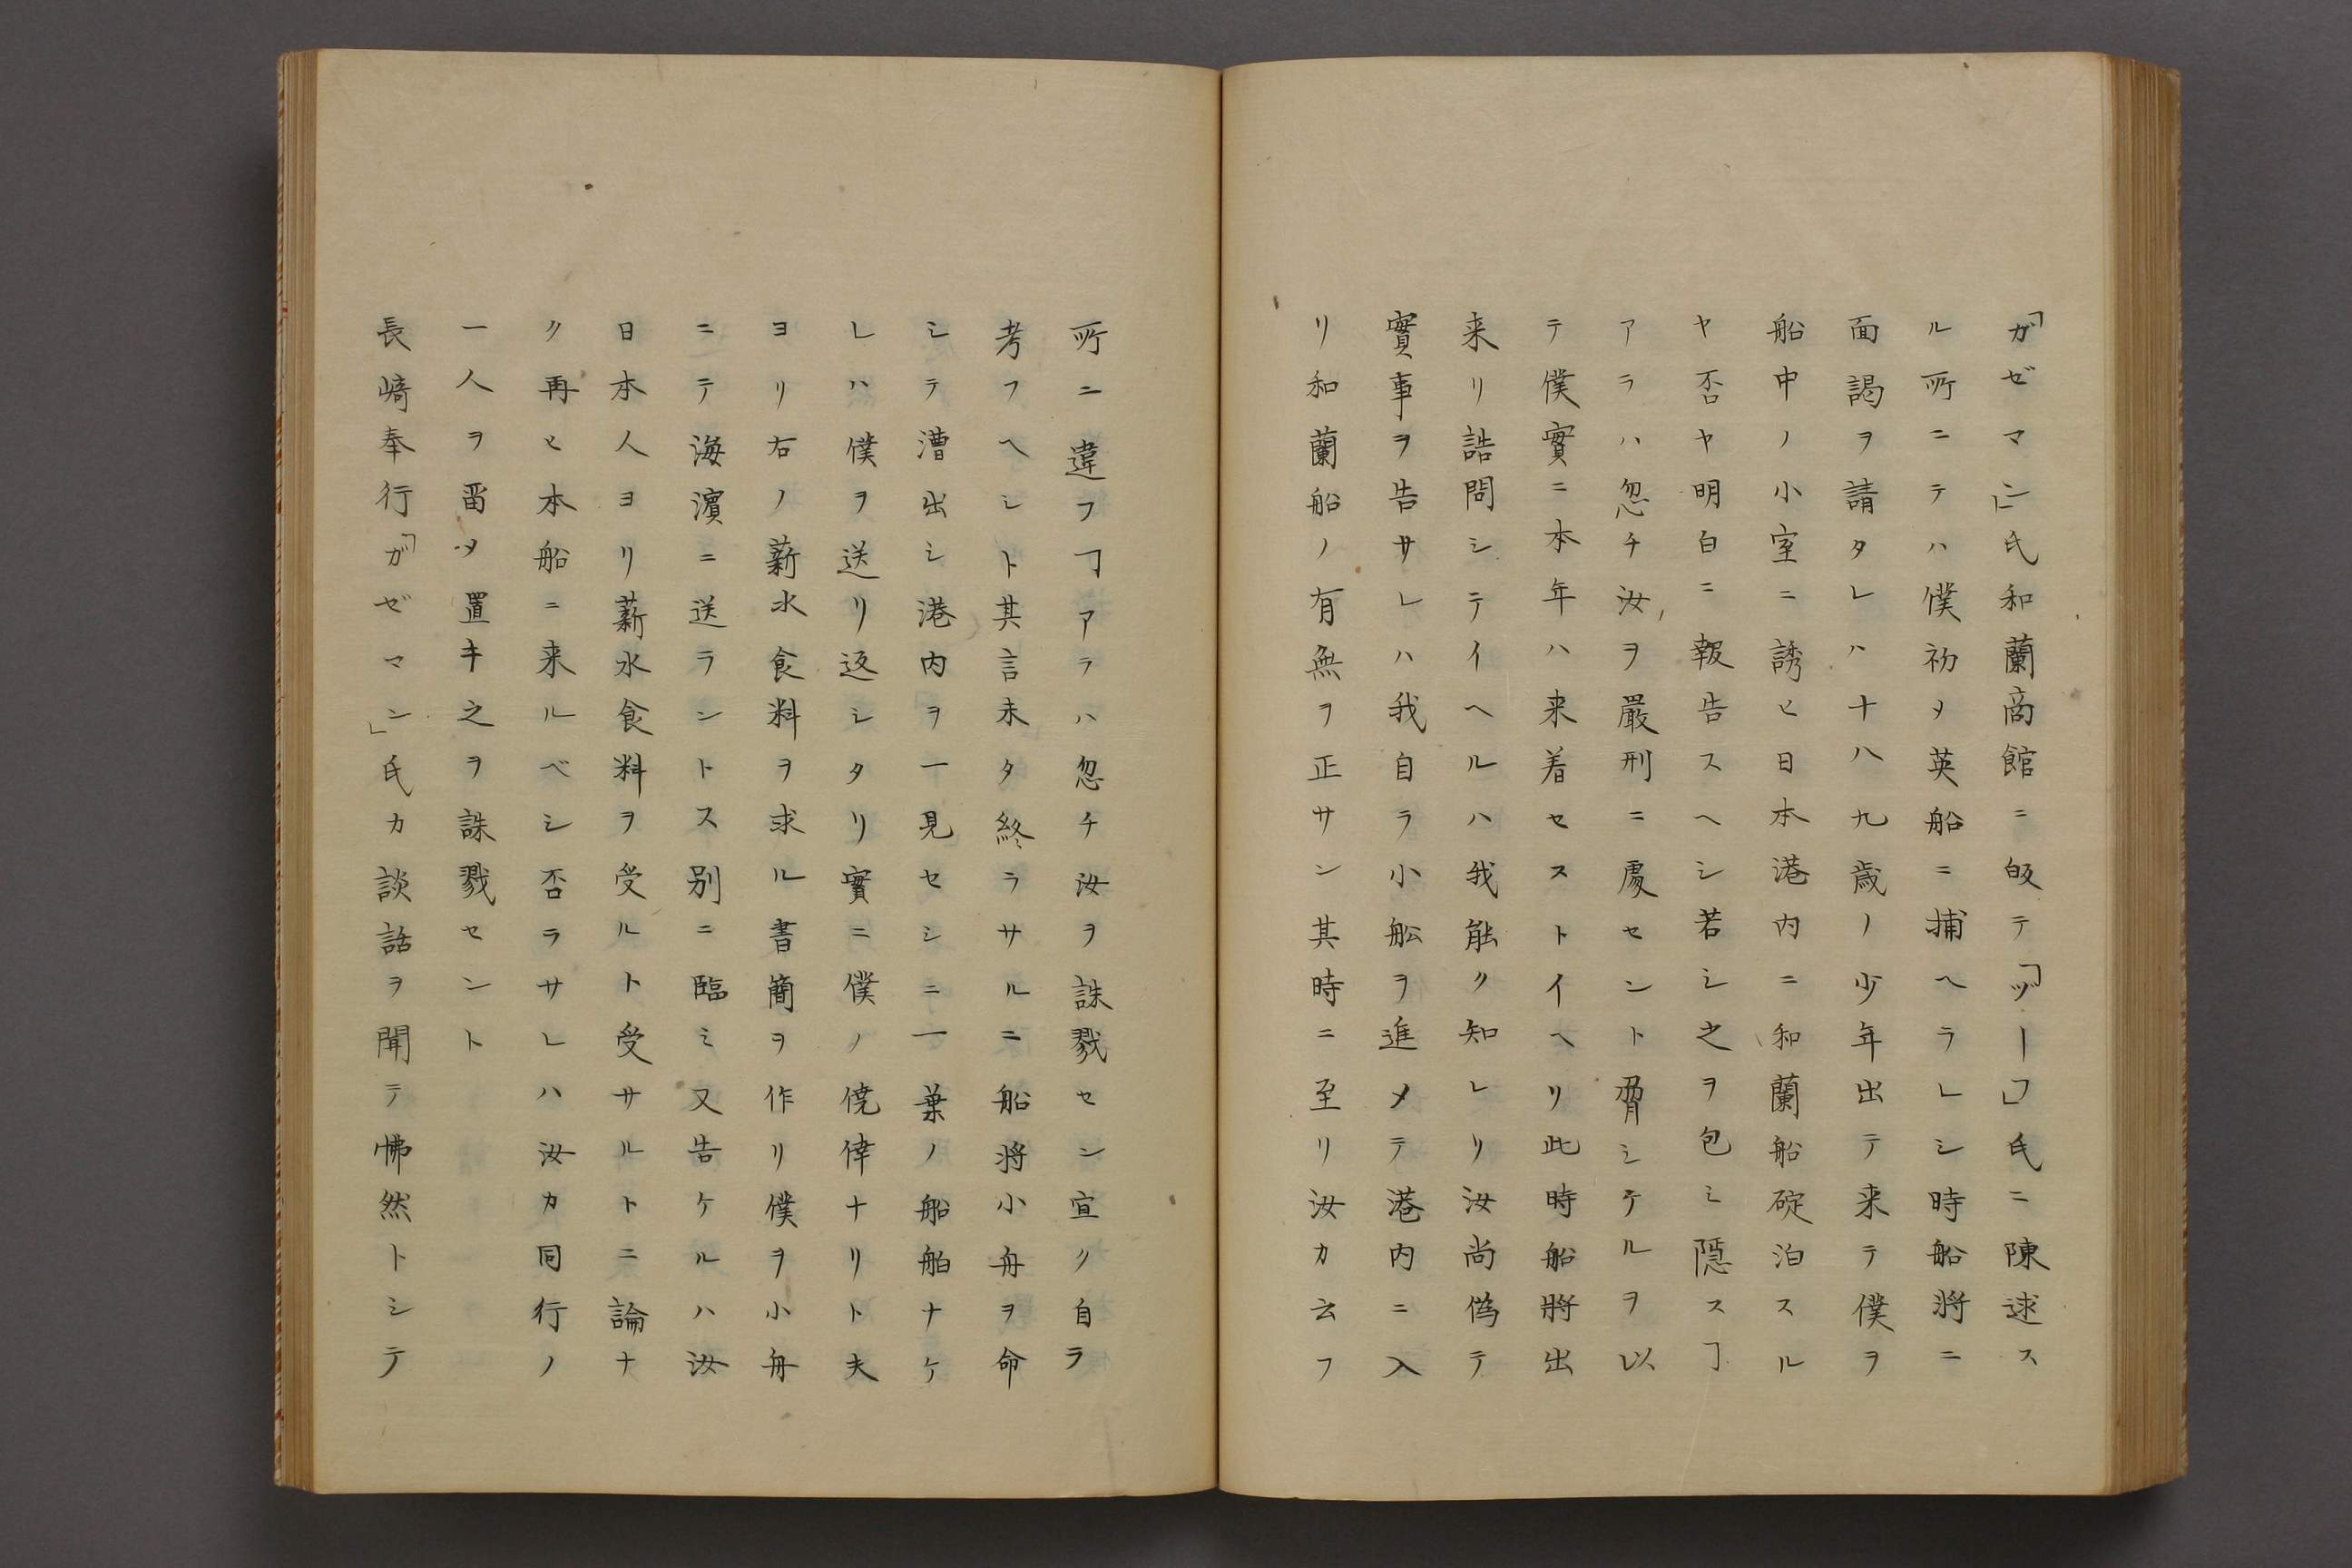 「ガゼマン」氏和蘭商館ニ皈テ「ヅーフ」氏ニ陳逑ス
ル所ニテハ僕初メ英船ニ捕ヘラレシ時船將ニ
面謁ヲ請タレハ十八九歳ノ少年出テ来テ僕ヲ
船中ノ小室ニ誘ヒ日本港内ニ和蘭船碇泊スル
ヤ否ヤ明白ニ報告スヘシ若シ之ヲ包ミ隠スヿ
アラハ忽チ汝ヲ嚴刑ニ處セント脅シケルヲ以
テ僕實ニ本年ハ来着セストイヘリ此時船將出
来リ詰問シテイヘルハ我能ク知レリ汝尚僞テ
實事ヲ告サレハ我自ラ小舩ヲ進メテ港内ニ入
リ和蘭船ノ有無ヲ正サン其時ニ至リ汝カ云フ
所ニ違フヿアラハ忽チ汝ヲ誅戮セン宜ク自ラ
考フヘシト其言未タ終ラサルニ船將小舟ヲ命
シテ漕出シ港内ヲ一見セシニ一葉ノ船舶ナケ
レハ僕ヲ送リ返シタリ實ニ僕ノ僥倖ナリト夫
ヨリ右ノ薪水食料ヲ求ル書簡ヲ作リ僕ヲ小舟
ニテ海濵ニ送ラントス別ニ臨ミ又告ケルハ汝
日本人ヨリ薪水食料ヲ受ルト受サルトニ論ナ
ク再ヒ本船ニ来ルベシ否ラサレハ汝カ同行ノ
一人ヲ畱メ置キ之ヲ誅戮セント
長崎奉行「ガゼマン」氏カ談話ヲ聞テ怫然トシテ